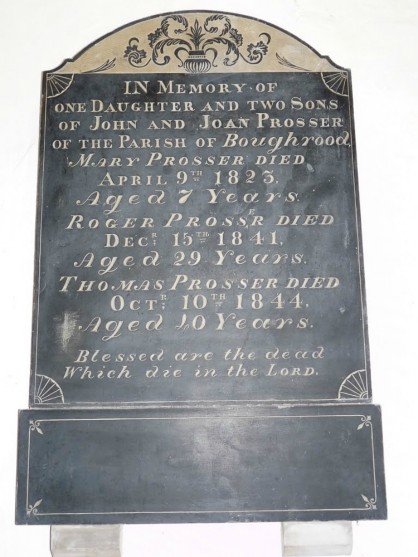 IN MEMORY OF
ONE DAUGHTER AND TWO SONS
OF JOHN AND JOAN PROSSER
OF THE PARISH OF Boughrood,
MARY PROSSER DIED
APRIL 9TH 1823,
Aged 7 Years.
ROGER PROSSER DIED
DECR. 15TH 1841,
Aged 29 Years.
THOMAS PROSSER DIED
OCTR. 10TH 1844.
Aged Years.
Blessed are the dead
Which die in the LORD.